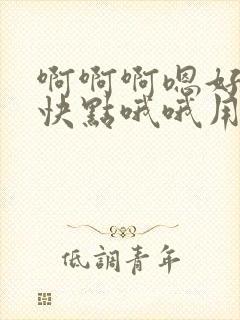 啊啊啊嗯好
快點哦哦用
低調青年